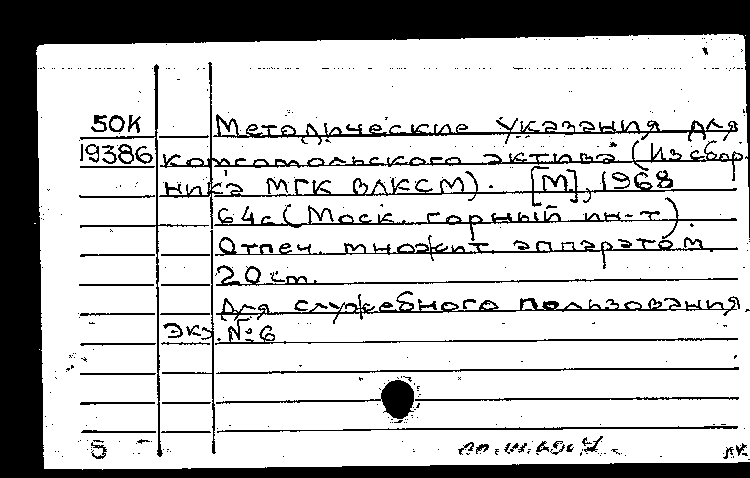 50К Методические указания для
19386 комсомольского актива (Из сбор
ника МГК ВЛКСМ). [М], 1968
64с (Моск. горный ин-т).
Отпеч. множит. аппаратом.
20 см.
Для служебного пользования.
Экз. № 6